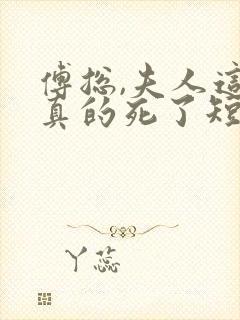 傅总,夫人這
真的死了短
丫蕊